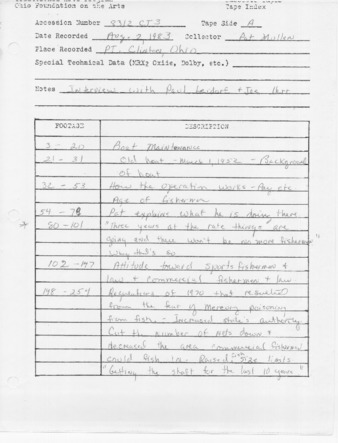 Ohio Foundation on the Arts
Tape Index
Accession Number
Tape Side A
Date Recorded Aug. 2, 1983 Collector Pat Mullen
Place Recorded PT. Clinton, Ohio
Special Technical Data (MXR, Oxide, Dolby, etc.)
Notes Interview with Paul
FOOTAGE DESCRIPTION
3 - 20 Boat Maintenance
21 - 31 Old boat - March 1, - Background
Of boat
32 - 53 How the operation works - Pay etc
Age of fisherman
54 - 78 Pat explains what he is doing there
80 - 101 "Three years at the rate things are
going and there won't be no more fishermen"
Why that's so
102 - 147 Attitude toward Sports Fisherman &
law + Commercial fisherman + law
148 - 254 Regulations of 1970 that resulted
from the fear of Mercury poisoning
from fish. - Increased state's authority
Cut the number of nets down &
decreased the area commercial fishermen
could fish in. Raised fish size limits
"Getting the shaft for the last 10 years"